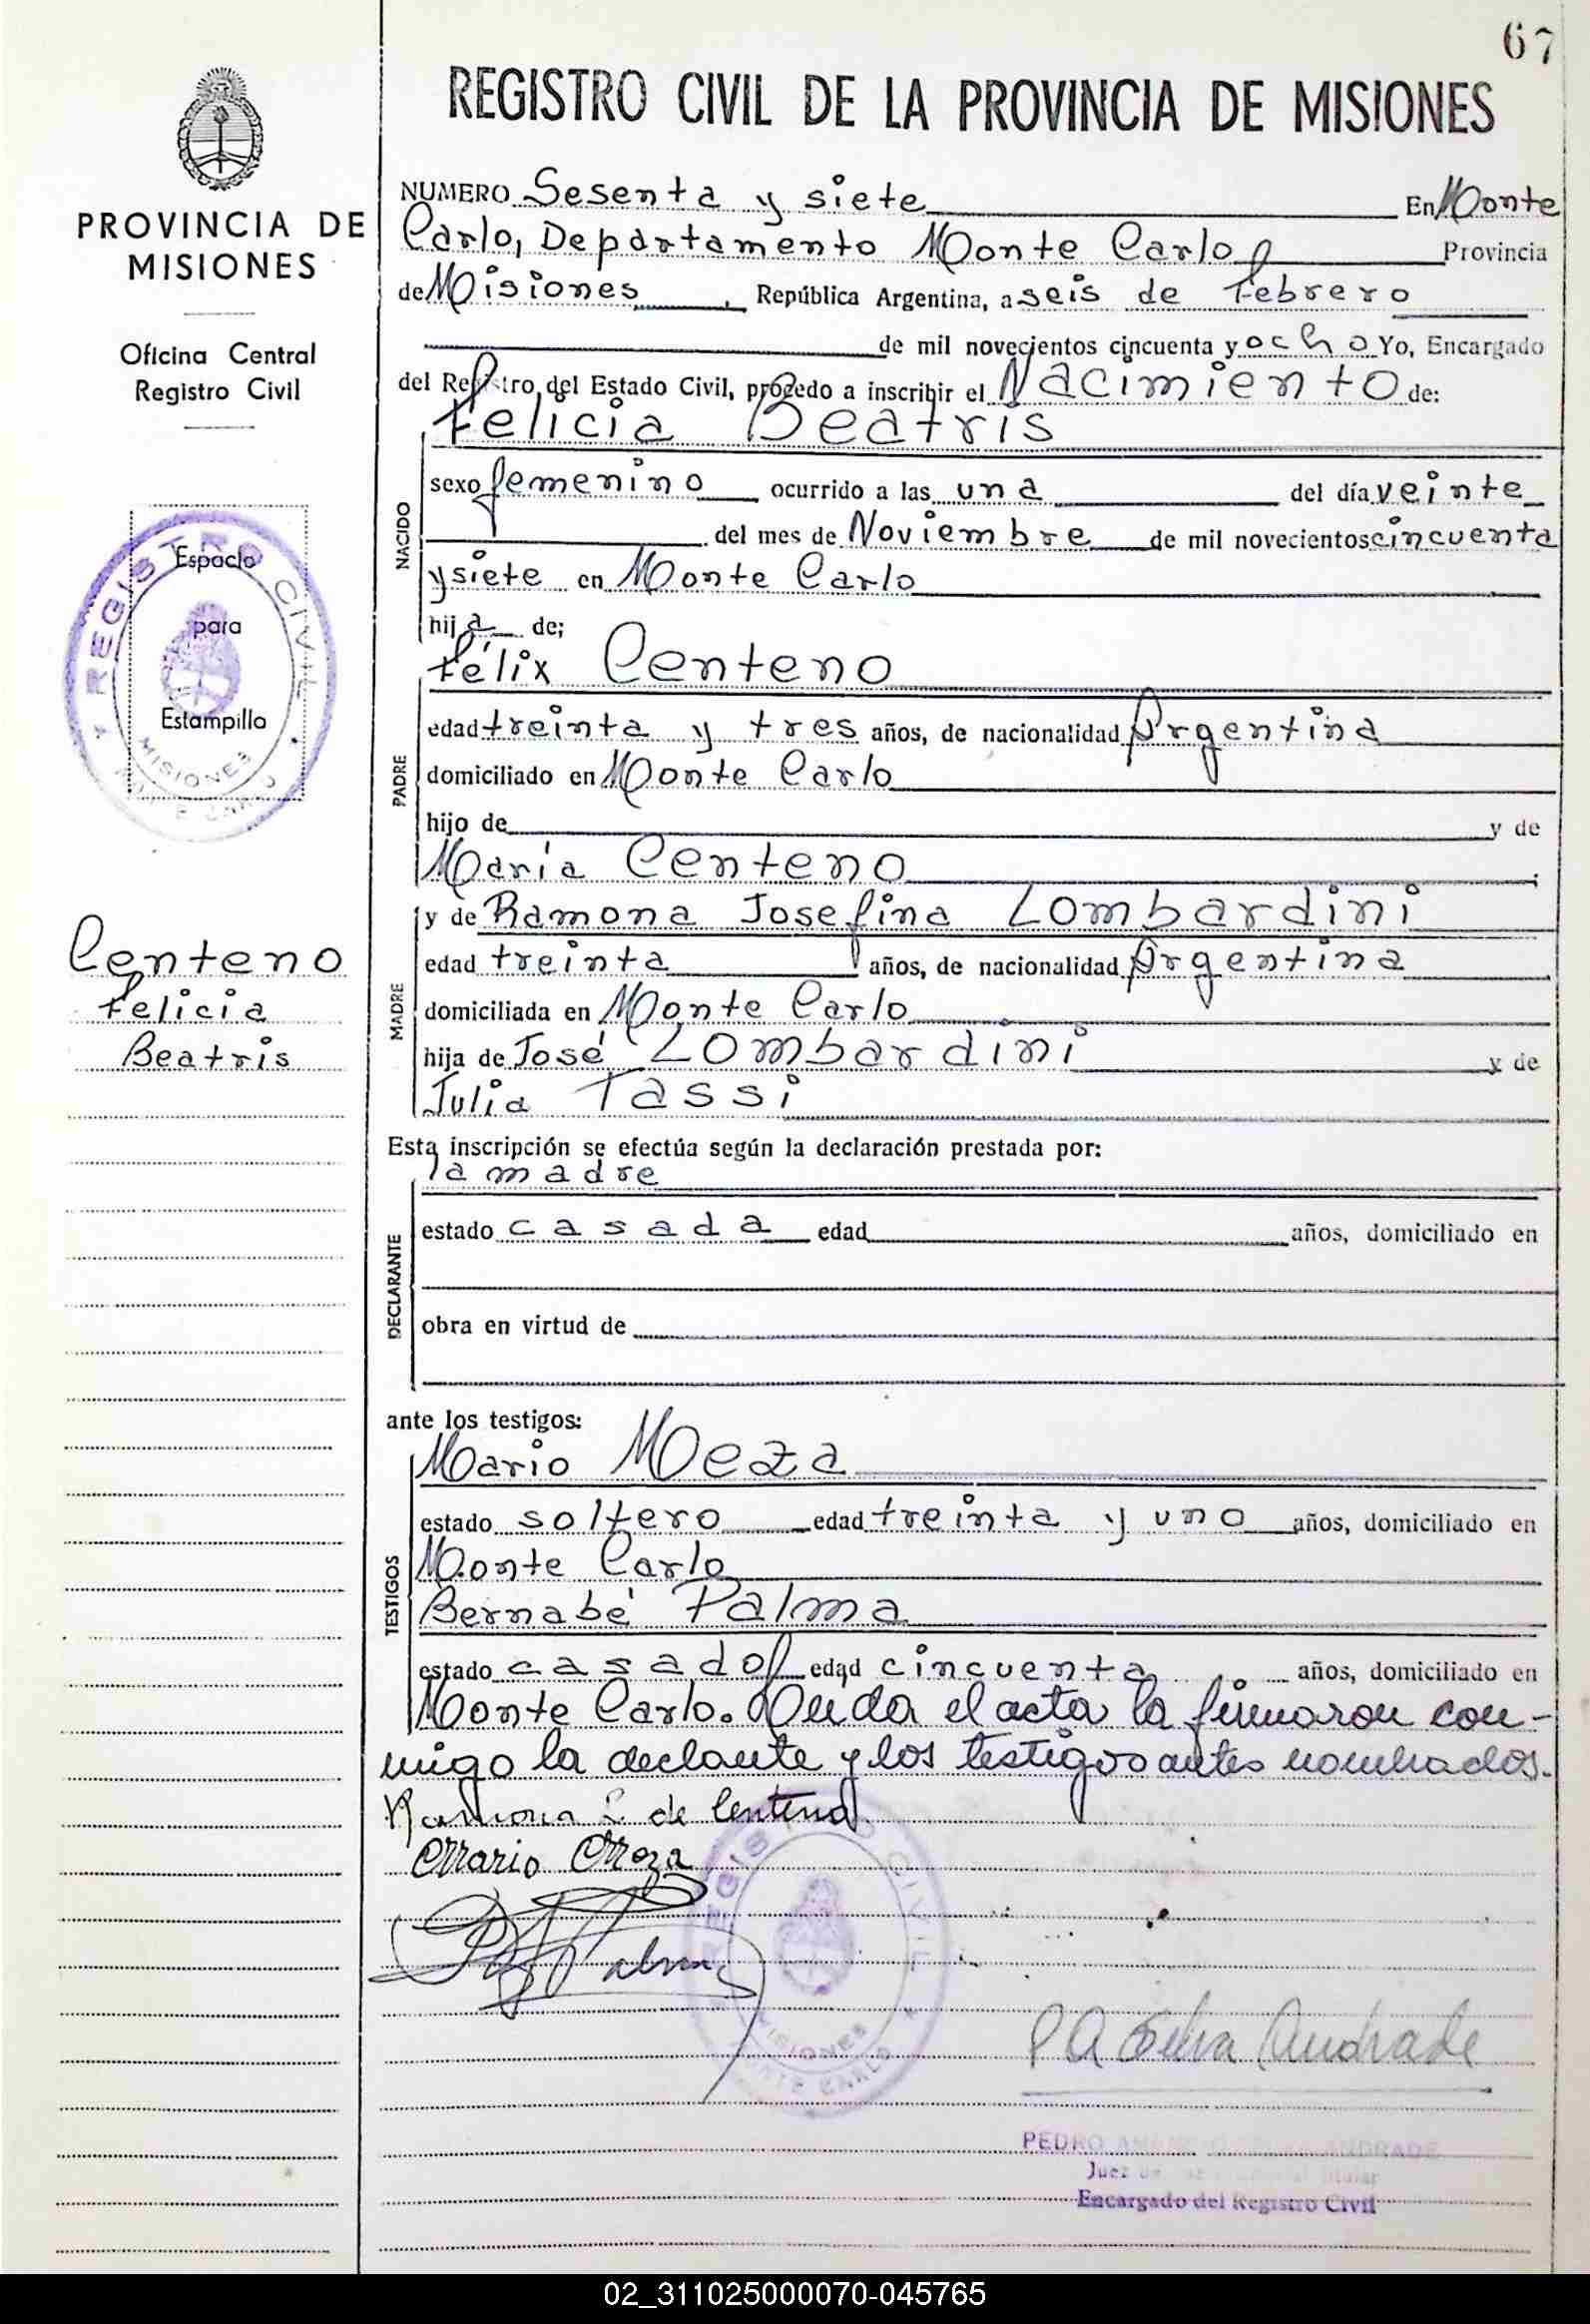 67
REGISTRO CIVIL DE LA PROVINCIA DE MISIONES
PROVINCIA DE
MISIONES
Oficina Central
Registro Civil
REGISTRO CIVIL
Espacio
para
Estampilla
MISIONES
MONTE CARLO
Centeno
Felicia
Beatris
NUMERO Sesenta y siete En Monte
Carlo, Departamento Monte Carlo Provincia
de Misiones, República Argentina, a seis de Febrero
de mil novecientos cincuenta y ocho Yo, Encargado
del Registro del Estado Civil, procedo a inscribir el Nacimiento de:
Felicia Beatris
NACIDO
sexo femenino ocurrido a las una del día veinte
del mes de Noviembre de mil novecientos cincuenta
y siete en Monte Carlo
hija de;
Félix Centeno
PADRE
edad treinta y tres años, de nacionalidad Argentina
domiciliado en Monte Carlo
hijo de y de
María Centeno
y de Ramona Josefina Lombardini
MADRE
edad treinta años, de nacionalidad Argentina
domiciliada en Monte Carlo
hija de José Lombardini y de
Julia Tassi
Esta inscripción se efectúa según la declaración prestada por:
la madre
DECLARANTE
estado casada edad años, domiciliado en
obra en virtud de
ante los testigos:
Mario Meza
TESTIGOS
estado soltero edad treinta y uno años, domiciliado en
Monte Carlo
Bernabé Palma
estado casado edad cincuenta años, domiciliado en
Monte Carlo. el acta la firmaron con-
migo la declante y los testigos antes nombrados.
Ramona L de Centeno
Mario Meza
Palma
REGISTRO CIVIL
MISIONES
MONTE CARLO
P A Silva Andrade
PEDRO ANDRADE
Juez
Encargado del Registro Civil
02_311025000070-045765